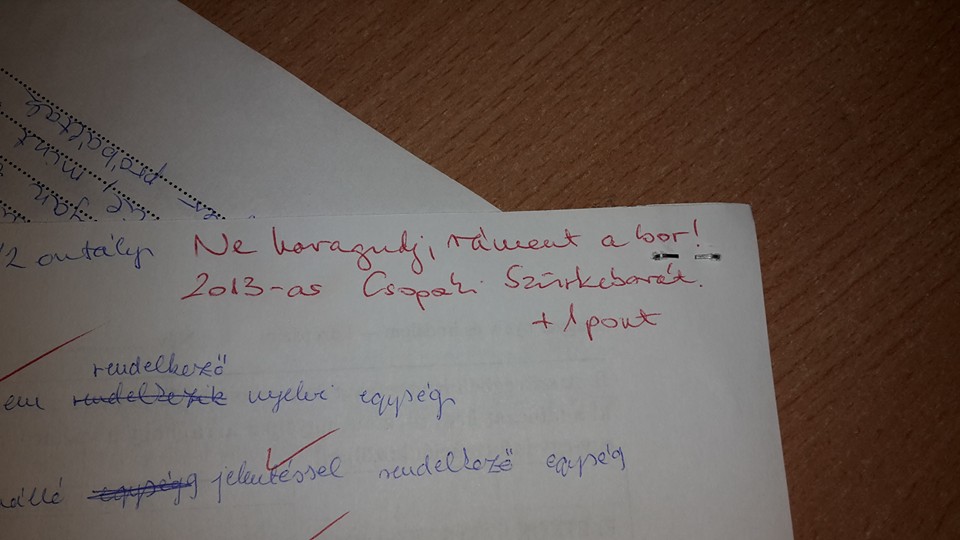 /2 osztály Ne haragudj, ráment a bor!
2013-as Csopaki Szürkebarát.
+1 pont
rendelkező
em rendelkezik nyelvi egység
nálló egység jelentéssel rendelkező egység
próbáltak
mint